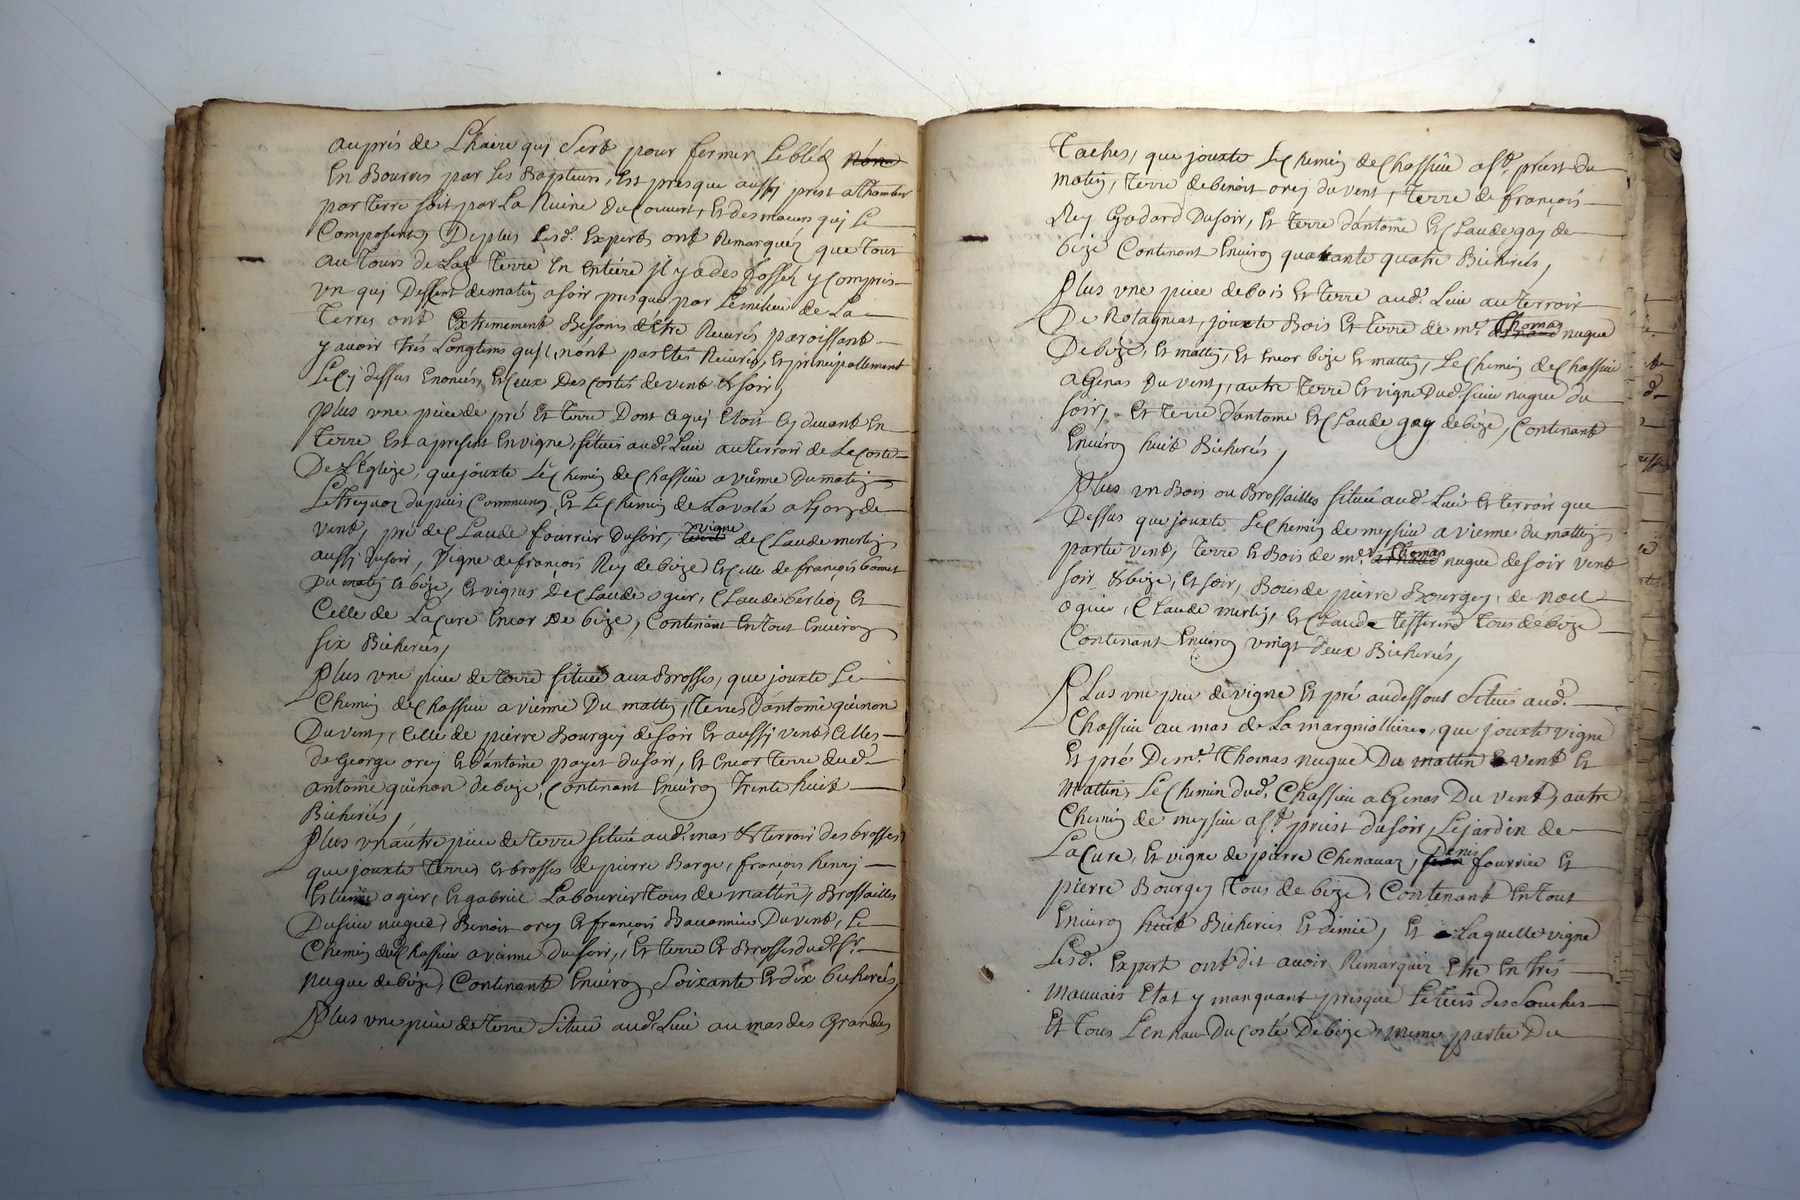 auprés de L'haire qui Sert pour fermer Le bléd
En Bourres par Les Batpteurs, Est presque aussy prest a Thomber
par Terre soit par La Ruine du Couvert, Et des meurs qui Le
Composent, De plus Lesd. Experts ont Remarquéz que Tout
au Tours de Lad. Terre En Entiére Jl y a des fossez y Compris
vn qui Dessent de matin a soir presque par Le milieu de La
Terres ont Extremement Besoins d'étre Recurés paroissant
y avoir Trés Longtems qu'il n'ont pas Etés Recurés, Et principallement
Le Cy dessus Enoncés, Et Ceux Des Costés de vent & soir,
plus vne piece de pré Et Terre Dont Ce qui Etoit Cy devant En
Terre Est a present En vigne, située aud. Lieu au Terroir de La Coste
De L'Eglize, que jouxte Le Chemin de Chassieu a vienne Du matin
Commung, Et Le Chemin de La
vent, pré de Claude fourrier Du soir, vigne de Claude merlin
aussy du soir, vigne de françois Rey de bize Et Celle de françois bonnet
Du matin Et bize, Et vignes De Claude ogier, Claude berlioz Et
Celle de La Cure Encor de bize, Contenant En tout Environ
six Bicherées,
Plus vne piece de Terre située aux Brosses, que jouxte Le
Chemin de Chassieu a vienne Du mattin, Terres d'antoine quinon
Du vent, Celle de pierre Bourgey de soir Et aussy vent, Celles
de George orey Et d'antoine payet du soir, Et Encor Terre dud.
antoine quinon de bize, Contenant Environ Trente huit
Bicherées,
Plus vn autre piece de Terre située aud. mas & Terroir des brosses
que jouxte Terres Et brosses de pierre Barge, françois henry
Estienne agier, Et gabriel Labourier Tous de mattin, Brossailles
Du sieur nugue, Benoit orey Et françois Bauonnier Du vent, Le
Chemin de Chassieu a vienne du soir, Et Terre Et Brosses dud. Sr.
nugue de bize, Contenant Environ Soixante Et dix bicherées,
Plus vne piece de Terre Située aud. Lieu au mas des Grandes
Taches, que jouxte Le Chemin de Chassieu a St. priest du
matin, Terre de benoit orey du vent, Terre de françois
Rey Godard Du soir, Et Terre d'antoine Et Claude gay de
bize Contenant Environ quarante quatre Bicherées,
Plus vne piece de bois Et Terre aud. Lieu au Terroir
De Rotagniat, jouxte Bois Et Terre de mr. Thomas nugue
De bize, Et mattin, Et Encor bize Et mattin, Le Chemin de Chassieu
a Genas Du vent, autre Terre Et vigne Dud. sieur nugue du
soir, Et Terre d'antoine Et Claude gay de bize, Contenant
Environ huit Bicherées,
Plus vn Bois ou Brossailles située aud. Lieu Et Terroir que
Dessus que jouxte Le Chemin de meysieu a vienne du mattin
partie vent, Terre Et Bois de mr. Thomas nugue de soir vent
soir & bize, Et soir, Bois de pierre Bourgey, de noel
ogier, Claude merlin, Et Claude Tous de bize
Contenant Environ vingt deux Bicherées,
Plus vne piece de vigne Et pré au dessout Située aud.
Chassieu au mas de La margniolliere, que jouxte vigne
Et pré De mr. Thomas nugue Du mattin & vent Et
Mattin, Le Chemin dud. Chassieu a Genas Du vent, autre
Chemin de meysieu a St. priest du soir, Le jardin de
La Cure, Et vigne de pierre Chenavaz, Denis fourrier Et
pierre Bourgey Tous de bize, Contenant En tout
Environ huit Bicherées Et dimie, Et Laquelle vigne
Lesd. Expert ont dit avoir Remarquéz Etre En trés
mauvais Etat y manquant presque Le tiers des Souches
Et Tous L'en hau Du Costé De bize, meme partie Du